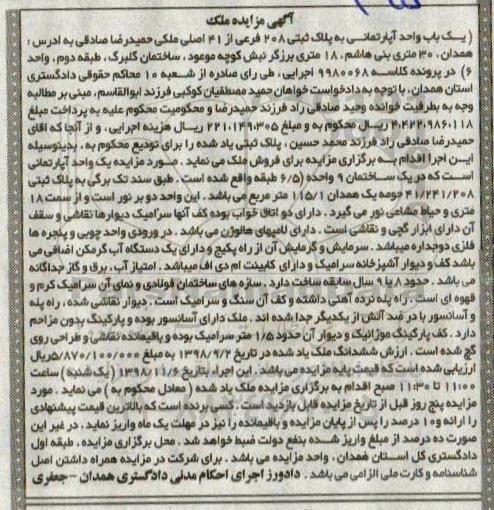 آگهی مزایده ملک
( یک باب واحد آپارتمانی به پلاک ثبتی ۲۰۸ فرعی از ۴۱ اصلی ملکی حمیدرضا صادقی به ادرس :
همدان ، ۳۰ متری بنی هاشم ، ۱۸ متری برزگر نبش کوچه موعود ، ساختمان گلبرگ ، طبقه دوم ، واحد
۶ ) در پرونده کلاسه ۹۹۸۰۰۶۸ اجرایی ، طی رای صادره از شعبه ۱۰ محاکم حقوقی دادگستری
استان همدان ، با توجه به دادخواست خواهان حمید مصطفیان کوکبی فرزند ابوالقاسم ، مبنی بر مطالبه
وجه به بطرفیت خوانده وحید صادقی راد فرزند حمیدرضا و محکومیت محکوم علیه به پرداخت مبلغ
۴،۴۲۲،۹۸۶،۱۱۸ ریال محکوم به و مبلغ ۲۲۱،۱۴۹،۳۰۵ ریال هزینه اجرایی ، و از آنجا که آقای
حمیدرضا صادقی راد فرزند محمد حسین ، پلاک ثبتی یاد شده را برای تودیع محکوم به ، بدینوسیله
این اجرا اقدام به برگزاری مزایده برای فروش ملک می نماید . مورد مزایده یک واحد آپارتمانی
است که در یک ساختمان ۹ واحده (۶/۵ طبقه واقع شده است . طبق سند تک برگی به پلاک ثبتی
۴۱/۲۴۱/۲۰۸ حومه یک همدان ۱۱۵/۱ متر مربع می باشد . این واحد دو بر نور است و از سمت ۱۸
متری و حیاط مشاعی نور می گیرد . دارای دو اتاق خواب بوده کف آنها سرامیک دیوارها نقاشی و سقف
آن دارای ابزار گچی و نقاشی است . دارای لامپهای هالوژن می باشد . در ورودی واحد چوبی و پنجره ها
فلزی دوجداره میباشد . سرمایش و گرمایش آن از راه پکیج و دارای یک دستگاه آب گرمکن اضافی می
باشد کف و دیوار آشپزخانه سرامیک و دارای کابینت ام دی اف میباشد . امتیاز آب ، برق و گاز جداگانه
می باشد . حدود ۸ یا ۹ سال سابقه ساخت دارد . سازه های ساختمان فولادی و نمای آن سرامیک کرم و
قهوه ای است . راه پله نرده آهنی داشته و کف آن سنگ و سرامیک است . دیوار نقاشی شده ، راه پله
و آسانسور با در ضد آتش از یکدیگر جدا شده اند . ملک دارای آسانسور بوده و پارکینگ بدون مزاحم
دارد . کف پارکینگ موزائیک و دیوار آن حدود ۱/۵ متر سرامیک بوده و باقیمانده نقاشی و طراحی روی
گچ شده است . ارزش ششدانگ ملک یاد شده در تاریخ ۱۳۹۸/۹/۲ به مبلغ ۵/۸۷۰/۱۰۰/۰۰۰ریال
ارزیابی شده است که قیمت پایه مزایده می باشد . این اجراء بتاریخ ۱۳۹۸/۱۱/۶ ( یک شنبه ) ساعت
۱۱:۰۰ تا ۱۱:۳۰ صبح اقدام به برگزاری مزایده ملک یاد شده ( معادل محکوم به ) می نماید . مورد
مزایده پنج روز قبل از تاریخ مزایده قابل بازدید است . کسی برنده است که بالاترین قیمت پیشنهادی
را ارائه و۱۰ درصد را پس از پایان مزایده و باقیمانده را نیز در مهلت یک ماه واریز نماید ، در غیر این
صورت ده درصد از مبلغ واریز شده بنفع دولت ضبط خواهد شد . محل برگزاری مزایده ، طبقه اول
دادگستری کل استان همدان ، واحد مزایده می باشد . برای شرکت در مزایده همراه داشتن اصل
شناسنامه و کارت ملی الزامی می باشد . دادورز اجرای احکام مدنی دادگستری همدان – جعفری